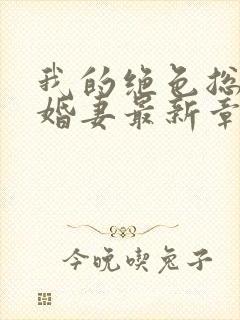 我的绝色总
婚妻最新章
今晚喫兔子